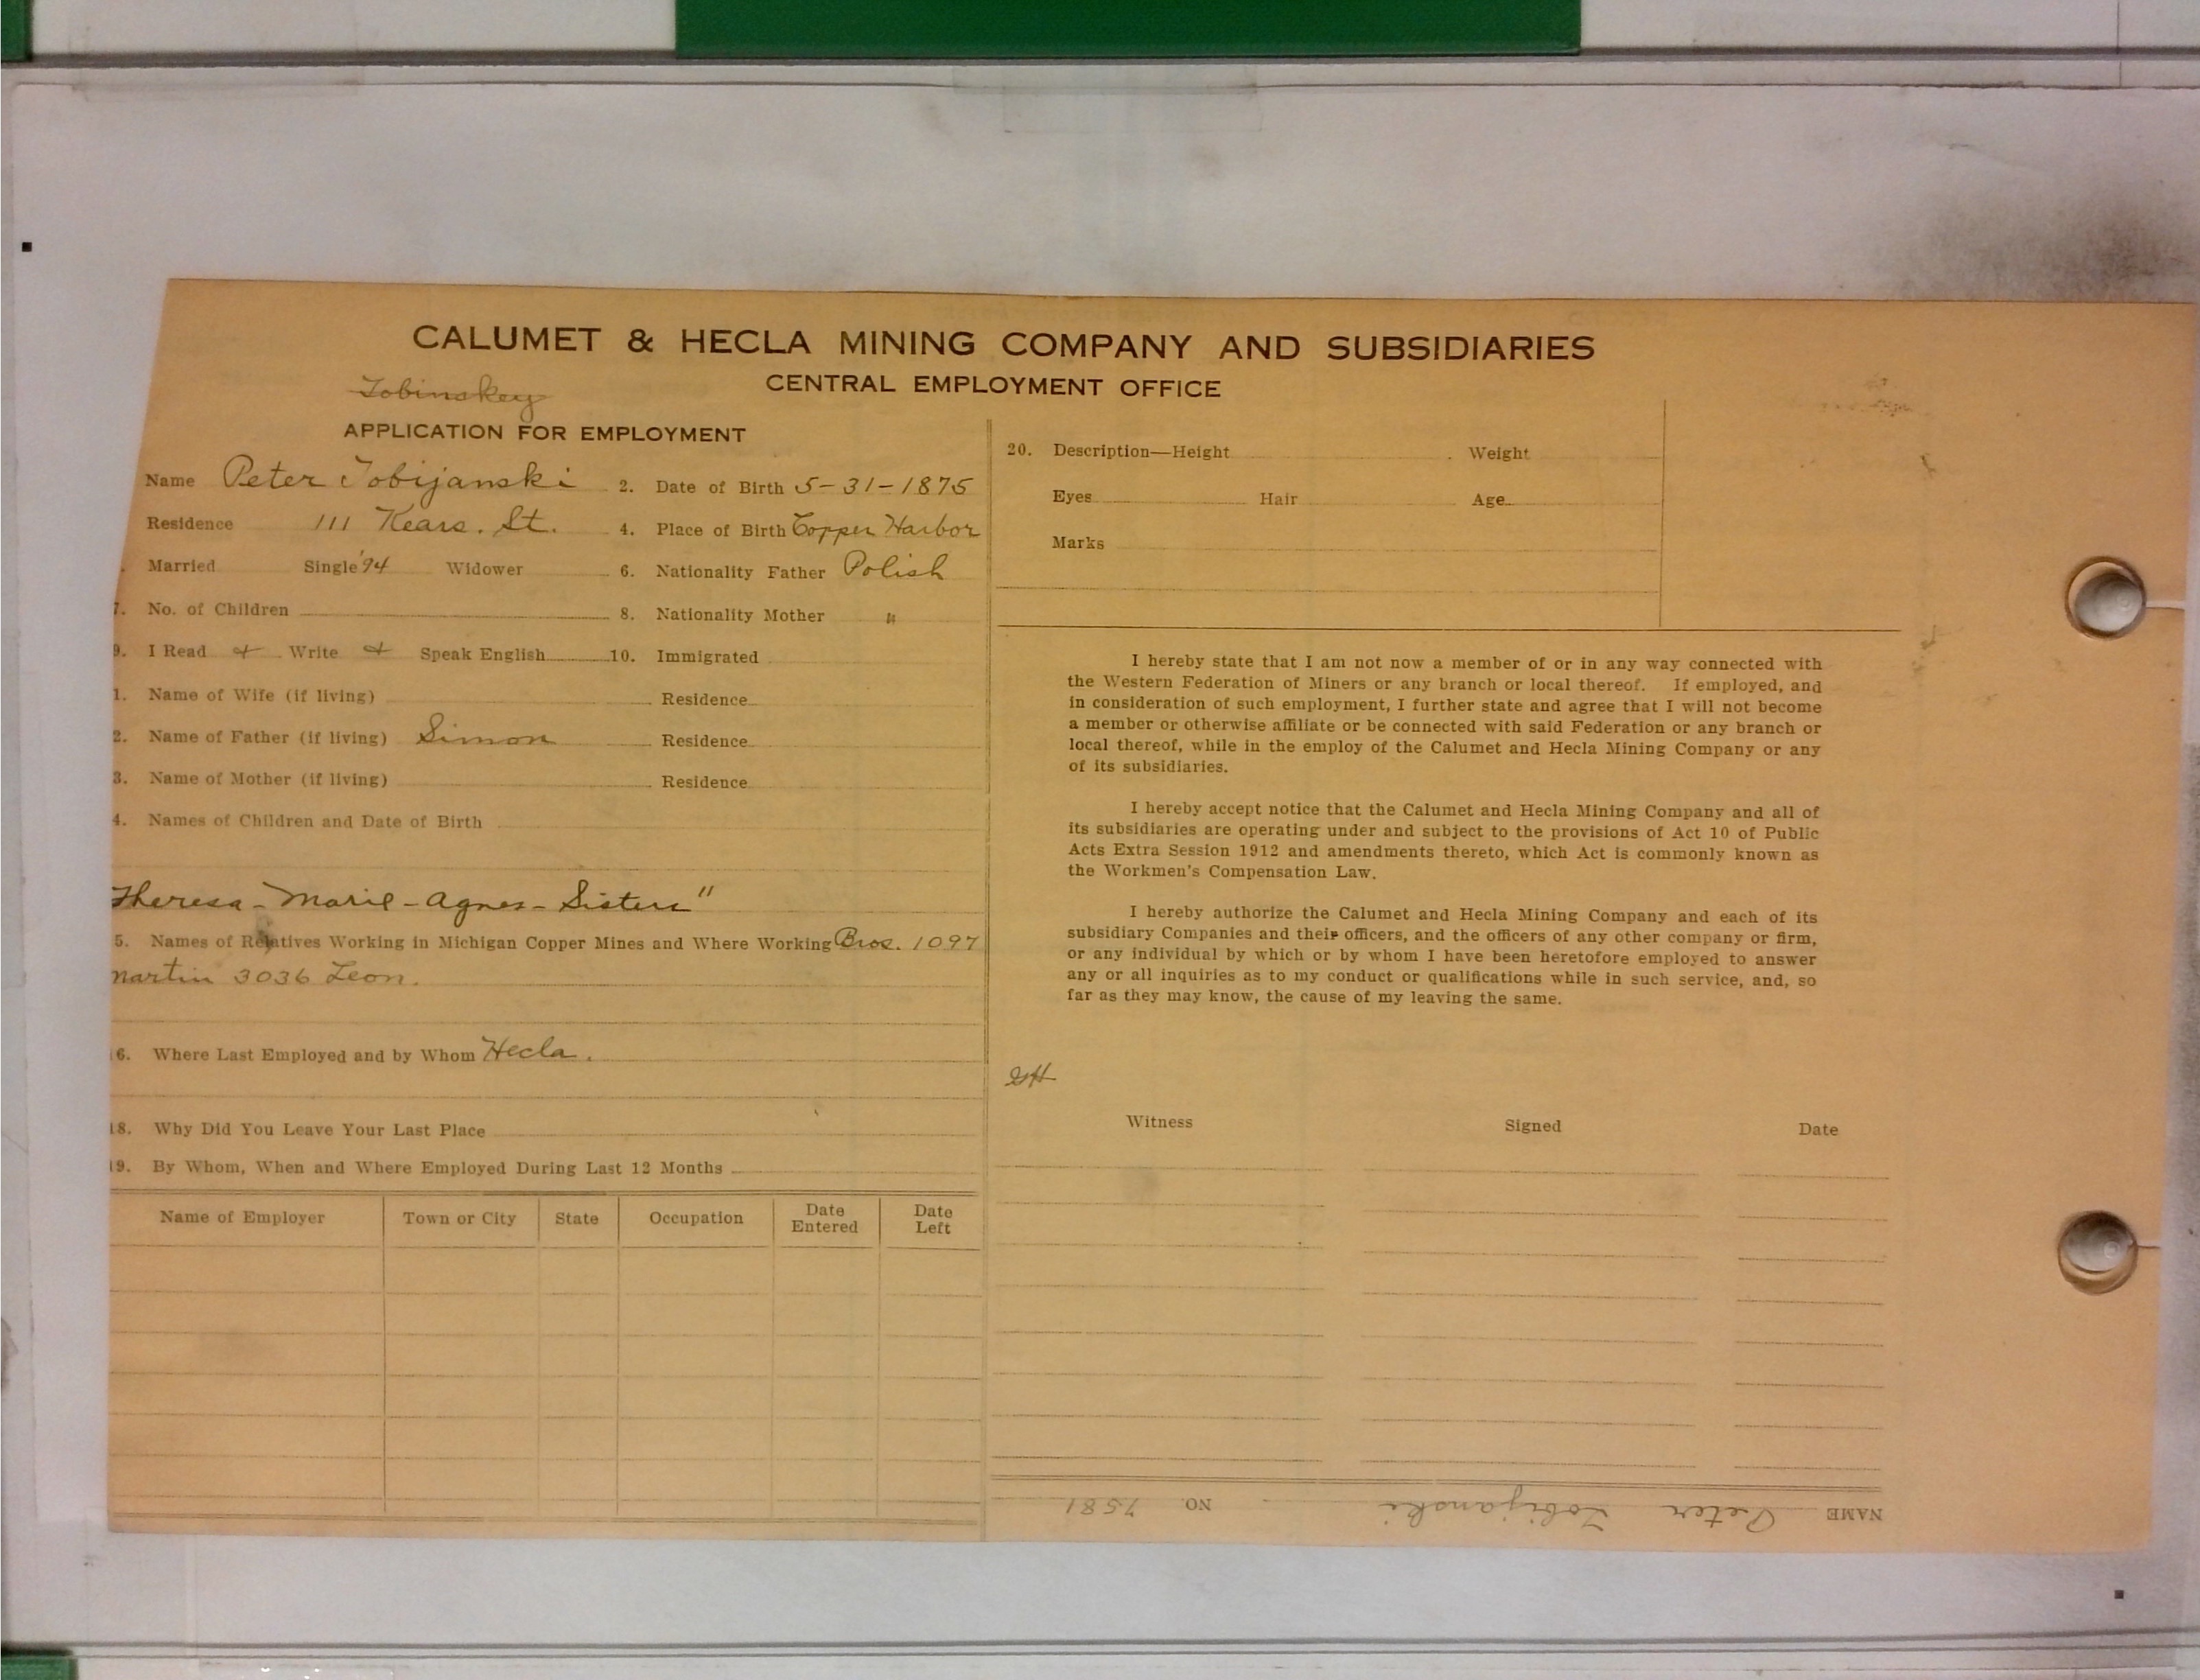 CALUMET & HECLA MINING COMPANY AND SUBSIDIARIES
CENTRAL EMPLOYMENT OFFICE
Tobinskey
APPLICATION FOR EMPLOYMENT
Name Peter Tobijanski 2. Date of Birth 5-31-1875
Residence 111 Kears. St. 4. Place of Birth Copper Harbor
Married Single '94 Widower 6. Nationality Father Polish
7. No. of Children 8. Nationality Mother "
9. I Read + Write + Speak English 10. Immigrated
1. Name of Wife (if living) Residence
2. Name of Father (if living) Simon Residence
3. Name of Mother (if living) Residence
4. Names of Children and Date of Birth
Theresa - Marie - Agnes - Sisters"
5. Names of Relatives Working in Michigan Copper Mines and Where Working Bros. 1097
Martin 3036 Leon.
16. Where Last Employed and by Whom Hecla.
18. Why Did You Leave Your Last Place
19. By Whom, When and Where Employed During Last 12 Months
Name of Employer Town or City State Occupation Date Entered Date Left
20. Description—Height Weight
Eyes Hair Age
Marks
I hereby state that I am not now a member of or in any way connected with
the Western Federation of Miners or any branch or local thereof. If employed, and
in consideration of such employment, I further state and agree that I will not become
a member or otherwise affiliate or be connected with said Federation or any branch or
local thereof, while in the employ of the Calumet and Hecla Mining Company or any
of its subsidiaries.
I hereby accept notice that the Calumet and Hecla Mining Company and all of
its subsidiaries are operating under and subject to the provisions of Act 10 of Public
Acts Extra Session 1912 and amendments thereto, which Act is commonly known as
the Workmen's Compensation Law.
I hereby authorize the Calumet and Hecla Mining Company and each of its
subsidiary Companies and their officers, and the officers of any other company or firm,
or any individual by which or by whom I have been heretofore employed to answer
any or all inquiries as to my conduct or qualifications while in such service, and, so
far as they may know, the cause of my leaving the same.
Witness Signed Date
NAME Peter Tobijanski NO. 7581